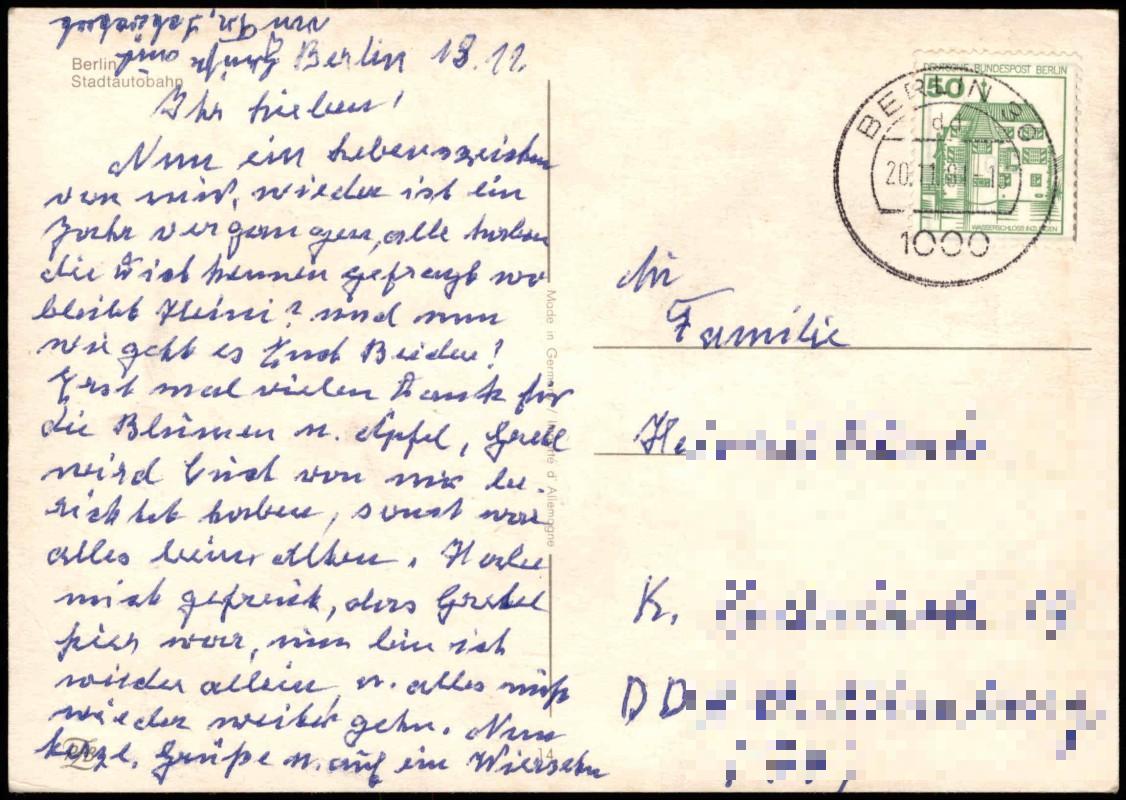 Berlin
Stadtautobahn
Berlin 18.11.
Ihr lieben!
Nun ein Lebenszeichen
von mir, wieder ist ein
Jahr vergangen, alle haben
die mich kennen gefragt wo
bleibt Heini? und nun
wie geht es Euch Beiden!
Erst mal vielen Dank für
die Blumen u. Äpfel, Gretel
wird Euch von mir be-
richtet haben, sonst war
alles beim Alten. Habe
mich gefreut, dass Gretel
hier war, nun bin ich
wieder allein u. alles muß
wieder weiter gehn. Nun
kurze Grüße u. auf ein Wiersehn
Made in Germany / Importé d'Allemagne
14
DEUTSCHE BUNDESPOST BERLIN
50
WASSERSCHLOSS INZLINGEN
BERLIN
dd
20.11.
1000
An
Familie
He
K.
DD